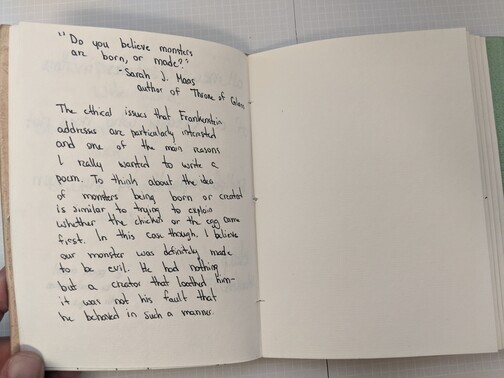 "Do you believe monsters
are born, or made?"
-Sarah J. Maas
author of Throne of Glass
The ethical issues that Frankenstein
addresses are particularly interested
and one of the main reasons
I really wanted to write a
poem. To think about the idea
of monsters being born or created
is similar to trying to explain
whether the chicken or the egg came
first. In this case though, I believe
our monster was definitely made
to be evil. He had nothing
but a creator that loathed him-
it was not his fault that
he behaved in such a manner.